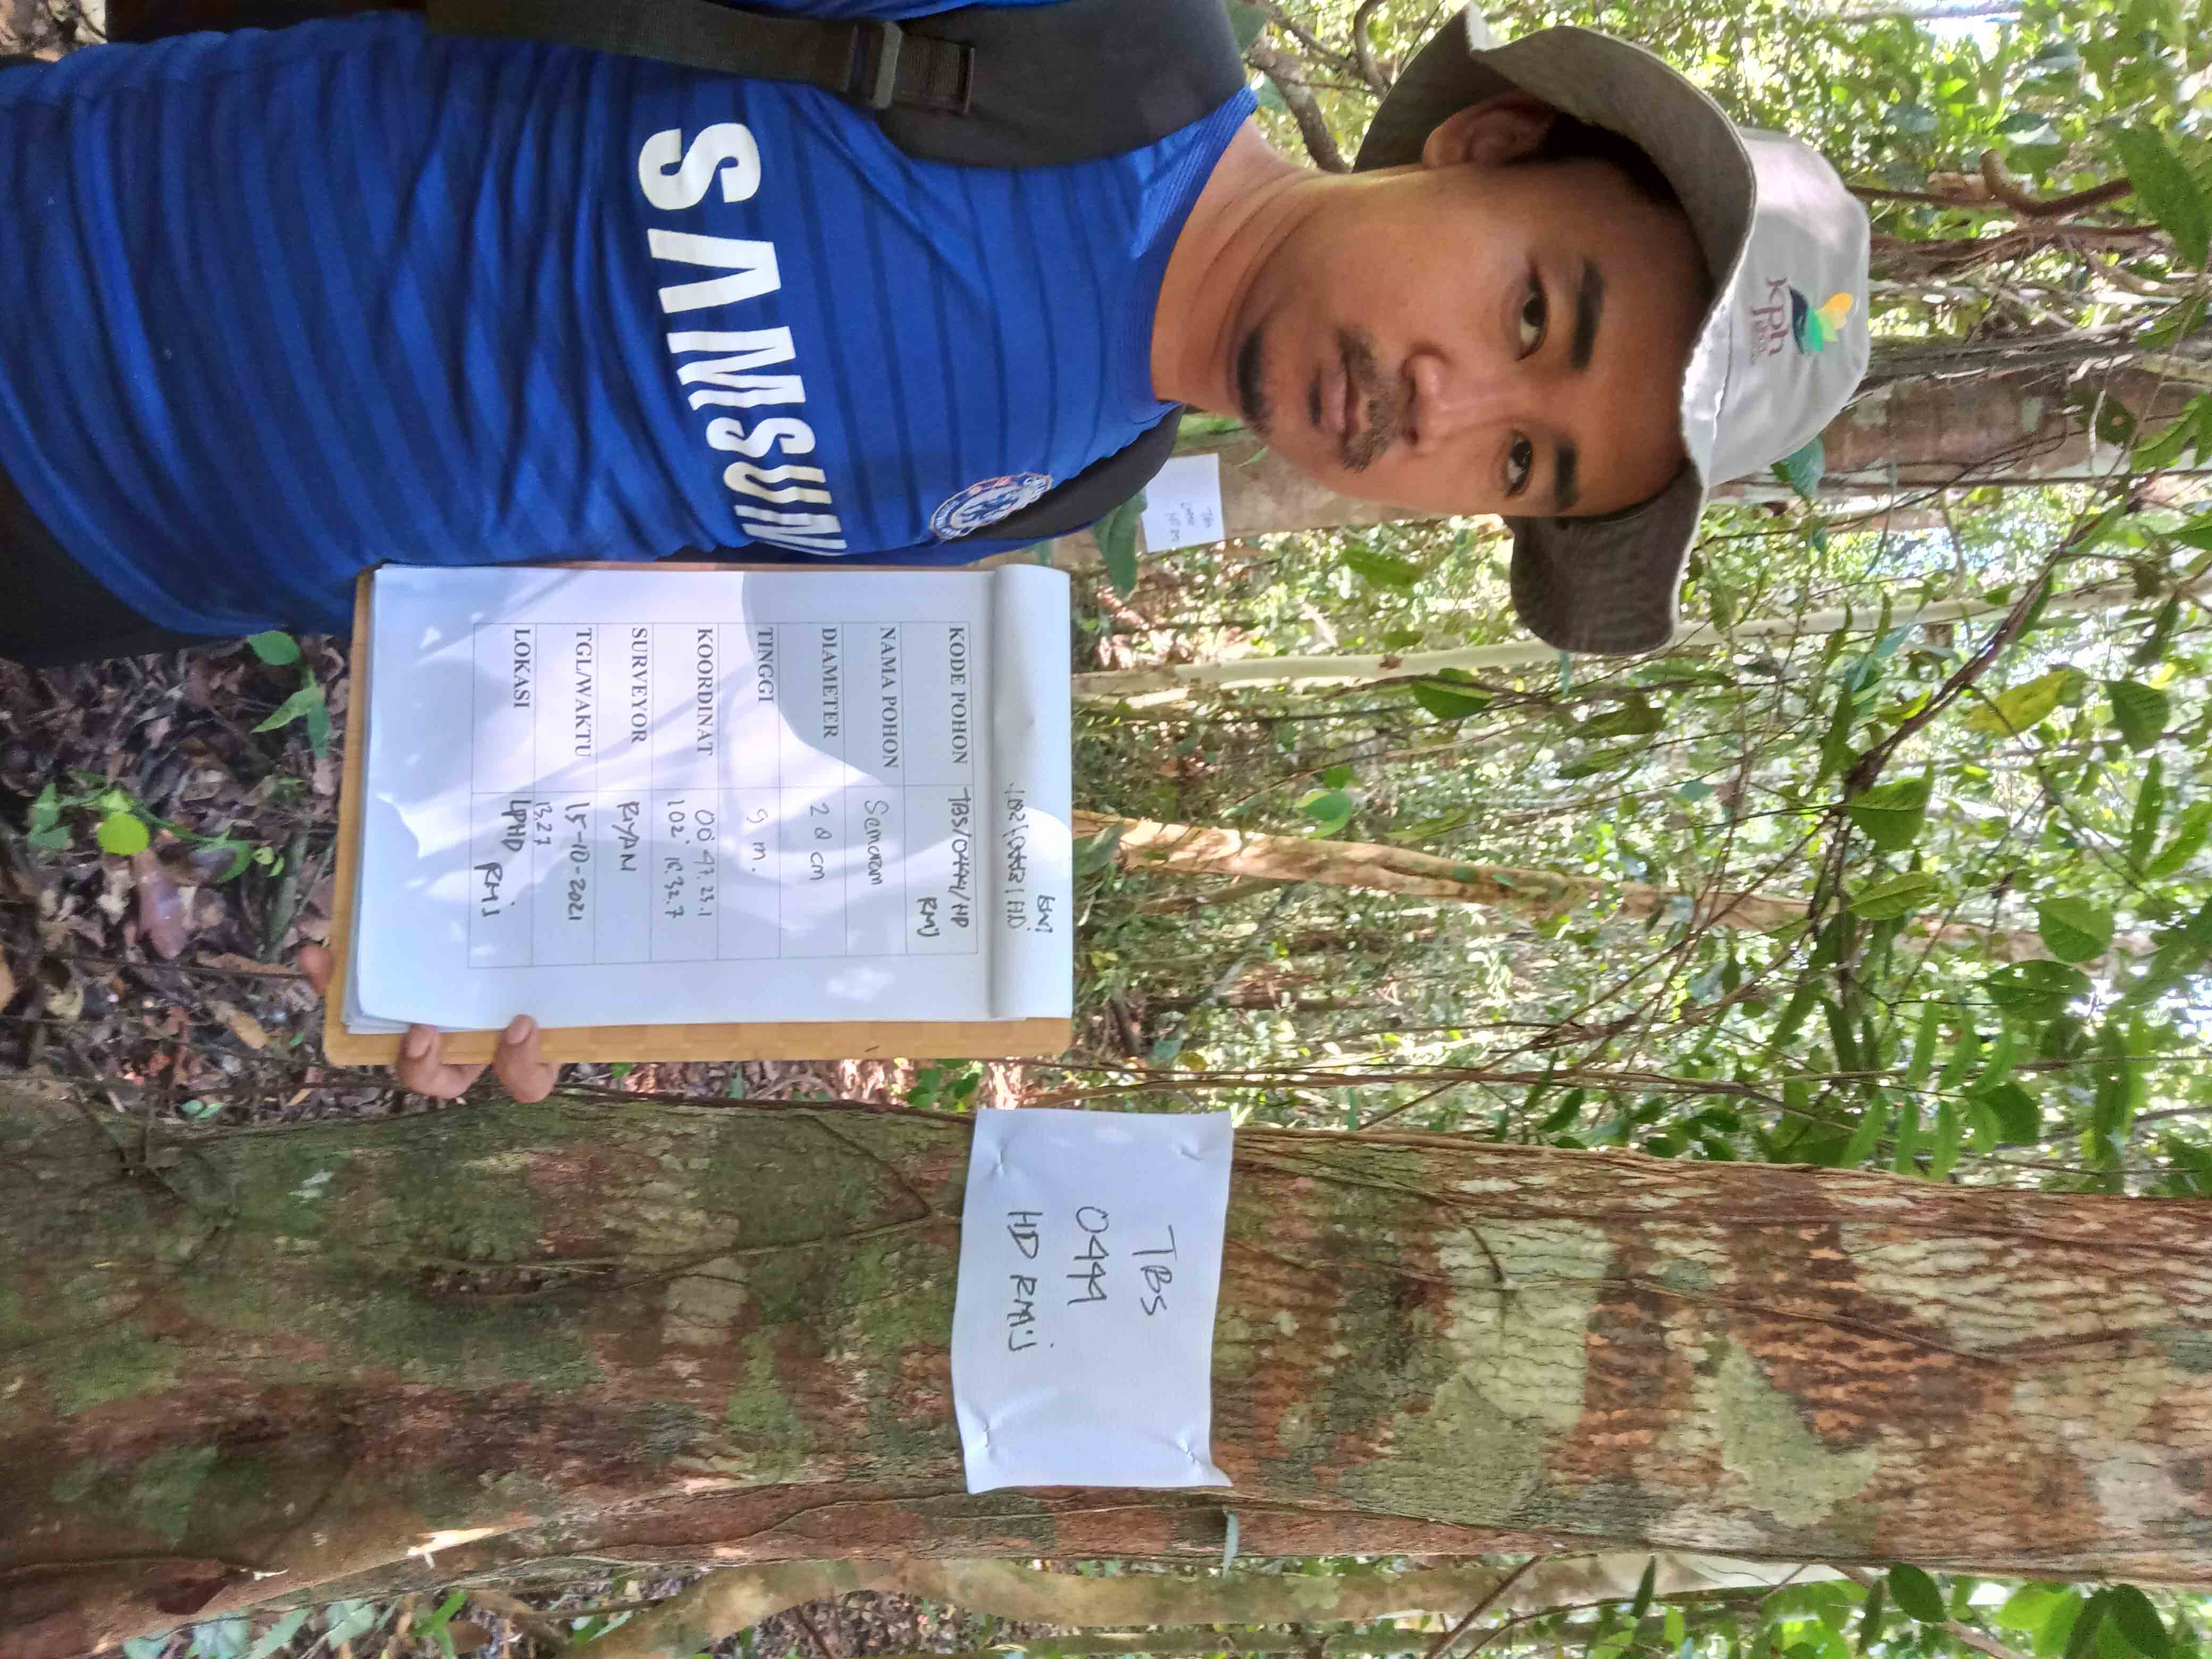 kph
SAMSUN
KODE POHON TBS/0444/HP
RMJ
NAMA POHON Semaram
DIAMETER 28 cm
TINGGI 9 m.
KOORDINAT 00° 47. 23.1
102° 15. 32. 7
SURVEYOR RIYAN
TGL/WAKTU 15-10-2021
13.27
LOKASI LPHD RMJ
TBS
0444
HD RMJ